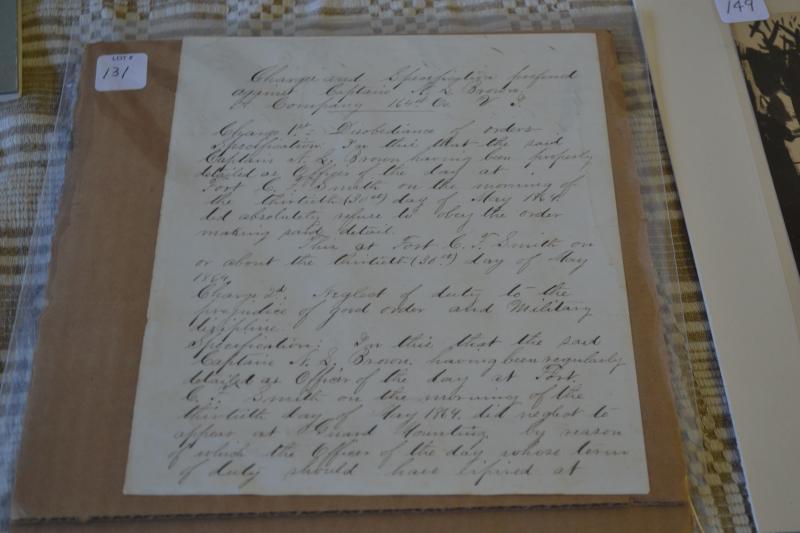 LOT #
131
149
Charges and Specification prefered
against Captain N. L. Brown,
Company 164th O. V. I.
Charge 1st: Disobediance of orders
Specification: In this that the said
Captain N. L. Brown having been properly
detailed as Officer of the day at
Fort C. F. Smith on the morning of
the thirtieth (30th) day of May 1864.
did absolutely refuse to obey the order
making said detail.
This at Fort C. F. Smith on
or about the thirtieth (30th) day of May
1864.
Charge 2d: Neglect of duty to the
prejudice of good order and Military
discipline.
Specification: In this, that the said
Captain N. L. Brown, having been regularly
detailed as Officer of the day at Fort
C. F. Smith on the morning of the
thirtieth day of May 1864, did neglect to
appear at Guard Mounting by reason
of which the Officer of the day whose term
of duty should have expired at